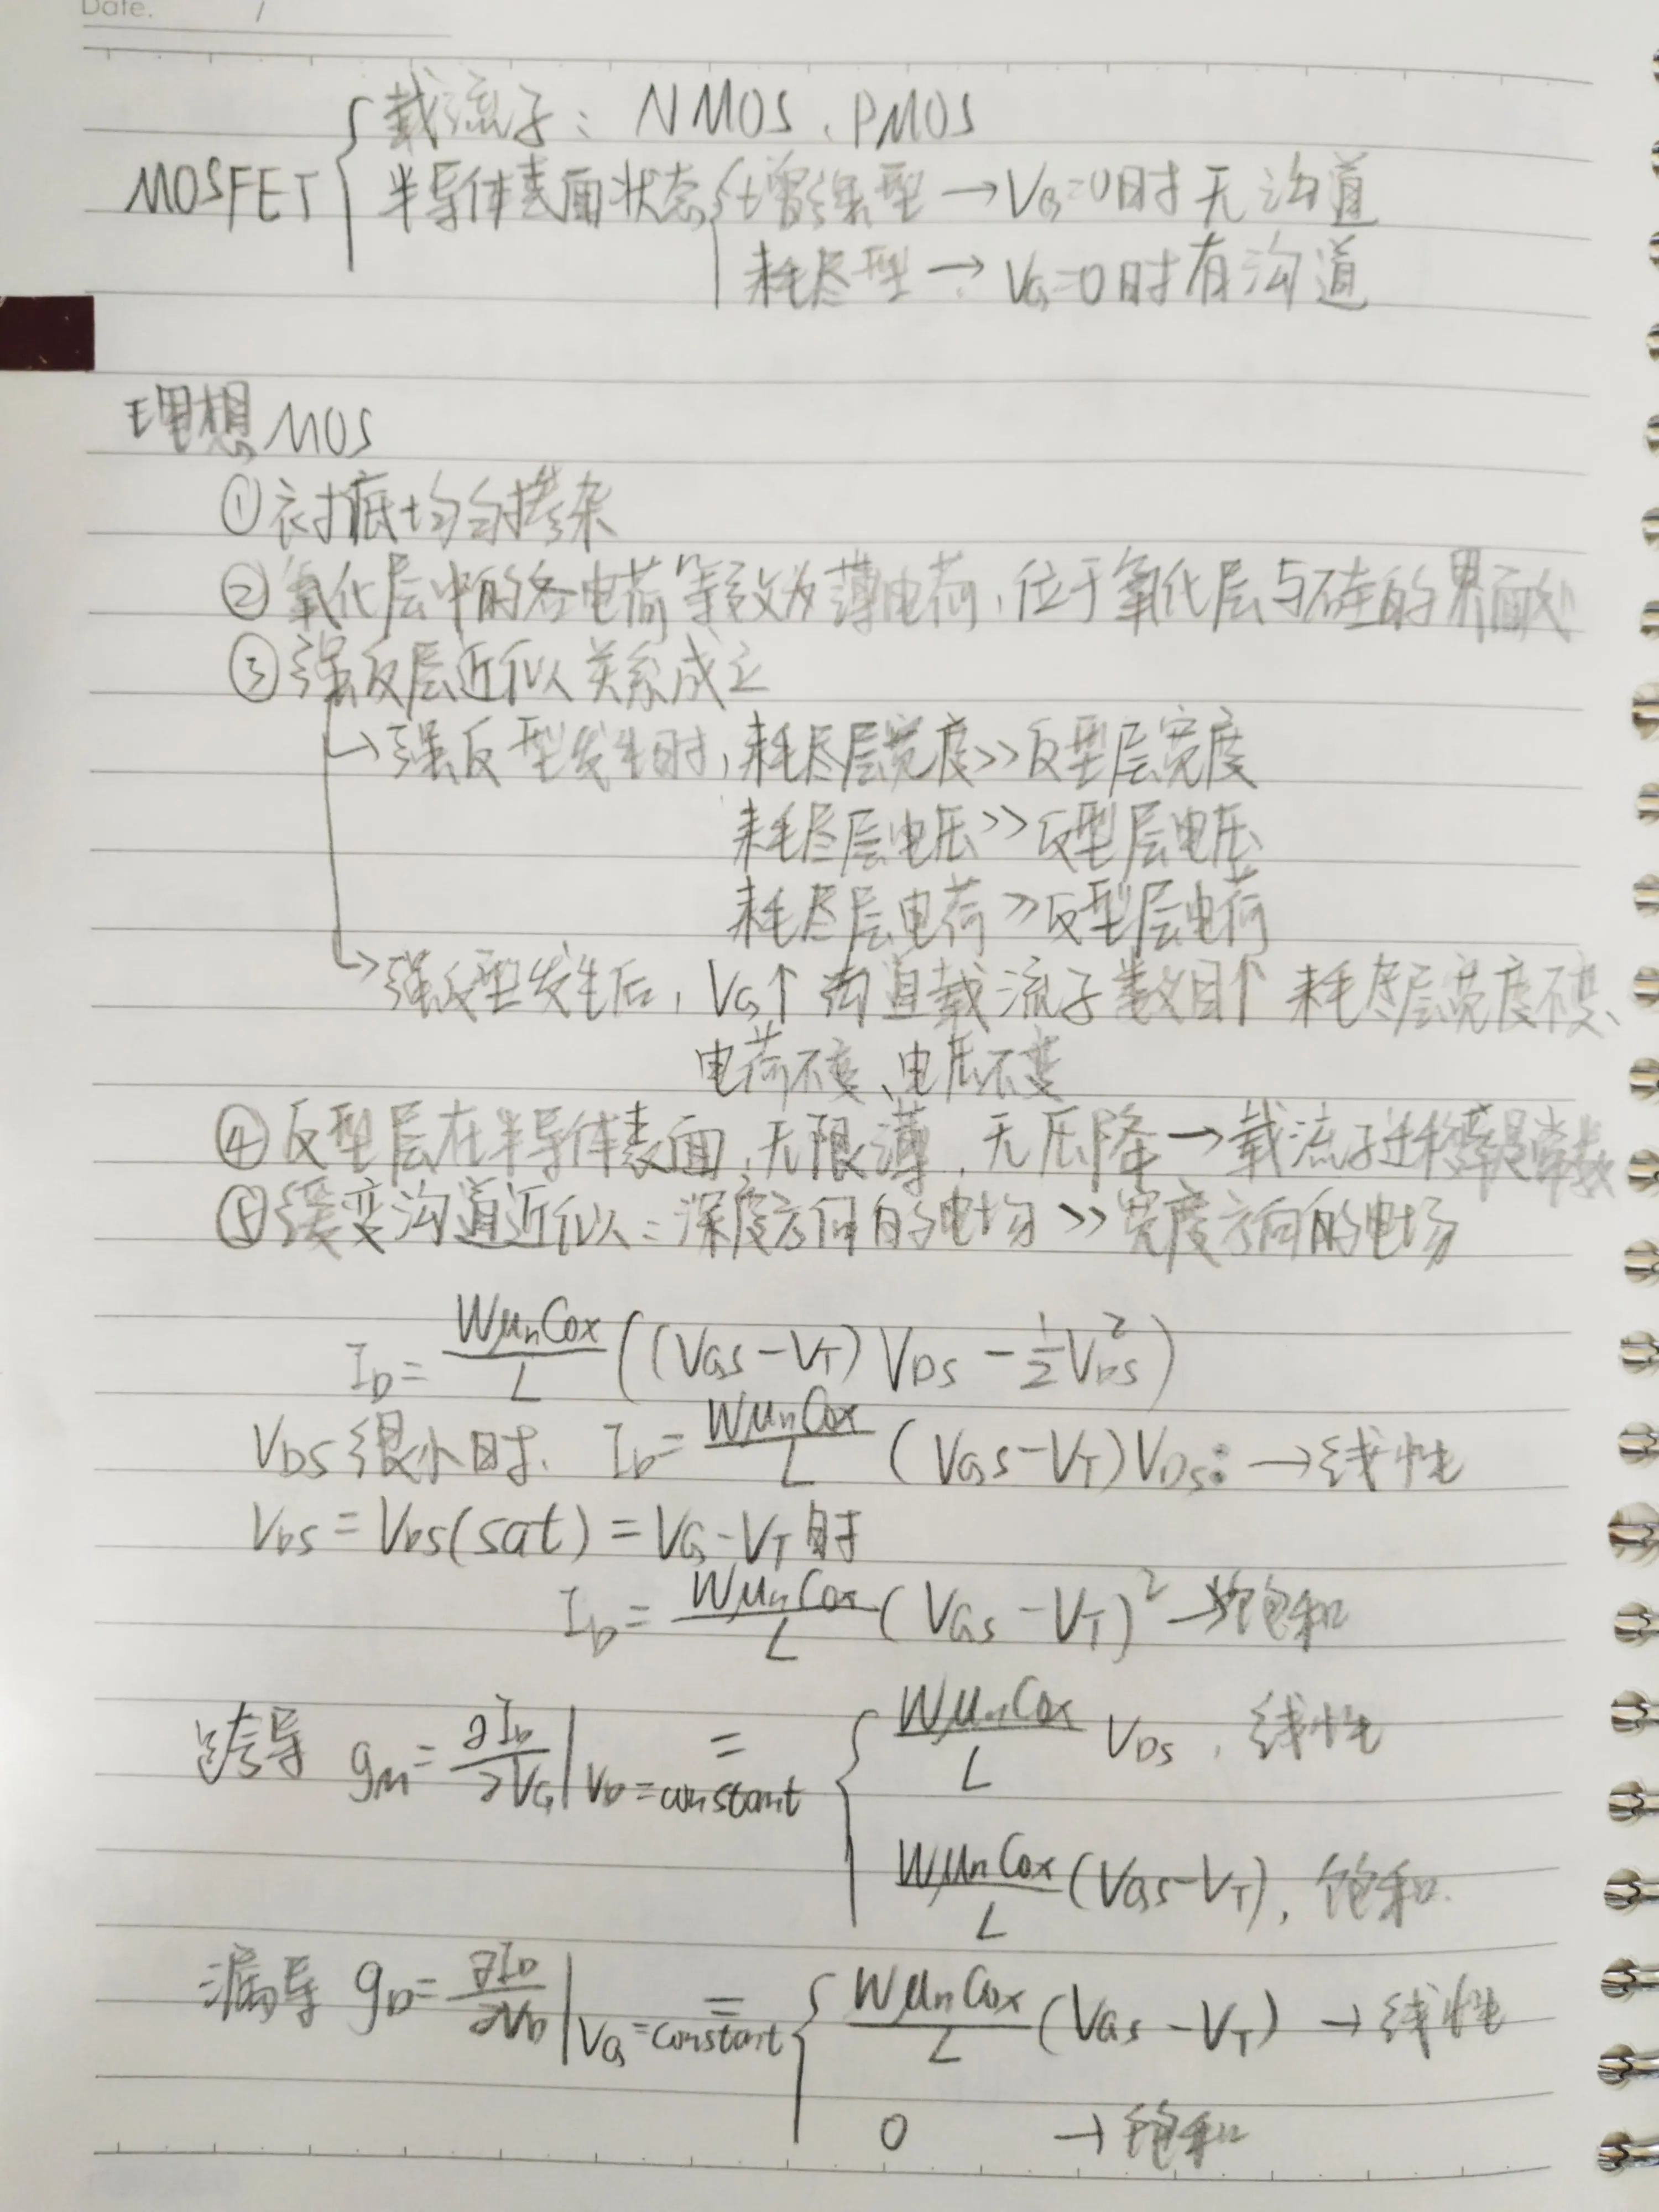 Date. /
载流子: NMOS、PMOS
MOSFET { 半导体表面状态 { 增强型 → V_G=0时无沟道
耗尽型 → V_G=0时有沟道
理想MOS
① 衬底均匀掺杂
② 氧化层中的各电荷等效为薄电荷,位于氧化层与硅的界面处
③ 强反层近似关系成立
↳ 强反型发生时,耗尽层宽度>>反型层宽度
耗尽层电压>>反型层电压
耗尽层电荷>>反型层电荷
↳ 强反型发生后,V_G↑ 沟道载流子数目↑ 耗尽层宽度不变、
电荷不变、电压不变
④ 反型层在半导体表面,无限薄,无压降→载流子迁移率是常数
⑤ 缓变沟道近似:深度方向的电场>>宽度方向的电场
I_D = \frac{Wμ_nCox}{L}((V_GS-V_T)V_DS-\frac{1}{2}V_DS^2)
V_DS很小时. I_D = \frac{Wμ_nCox}{L}(V_GS-V_T)V_DS: →线性
V_DS = V_DS(sat) = V_G-V_T时
I_D = \frac{Wμ_nCox}{L}(V_GS-V_T)^2 →饱和
跨导 g_m = \frac{∂I_D}{∂V_G}|V_D=constant = { \frac{Wμ_nCox}{L} V_DS, 线性
\frac{Wμ_nCox}{L}(V_GS-V_T), 饱和.
漏导 g_D = \frac{∂I_D}{∂V_D}|V_G=constant = { \frac{Wμ_nCox}{L}(V_GS-V_T) → 线性
0 → 饱和